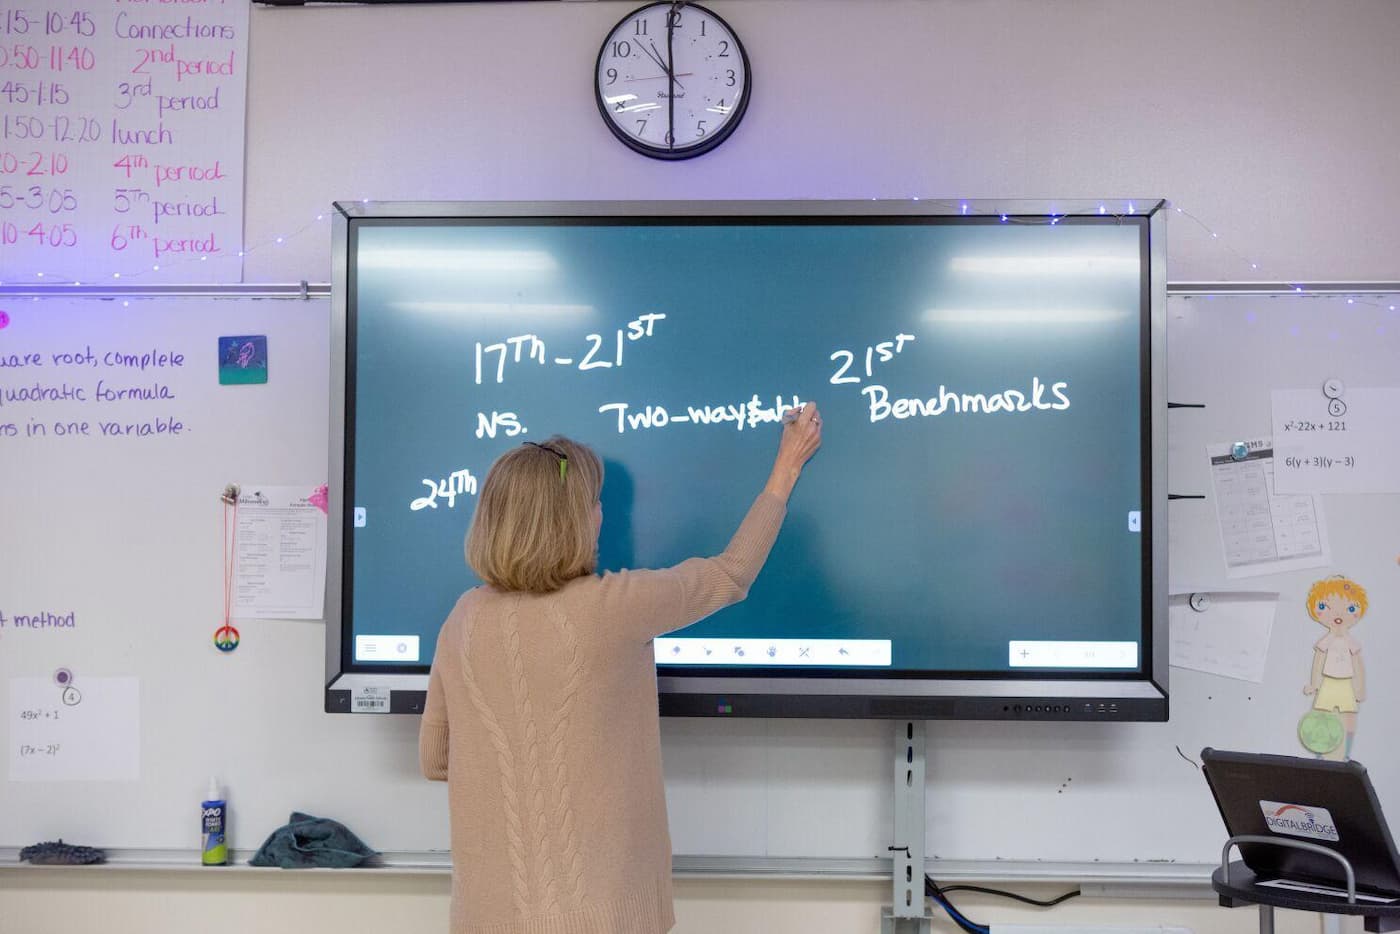 :15-10:45 Connections
0:50-11:40 2nd period
:45-1:15 3rd period
1:50-12:20 lunch
20-2:10 4th period
5-3:05 5th period
10-4:05 6th period
11 12 1
10 2
9 3
4
7 6 5
17Th-21ST
21ST
NS. Two-way
Benchmarks
24Th
root, complete
quadratic formula
in one variable.
method
4
49x² + 1
(7x – 2)²
5
x²-22x + 121
6(y + 3)(y – 3)
EXPO
DIGITALBRIDGE